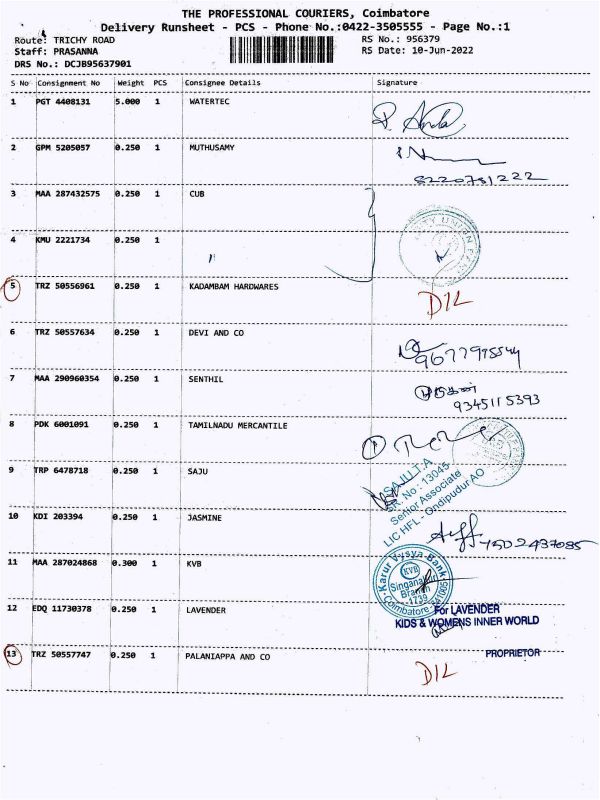 THE PROFESSIONAL COURIERS, Coimbatore
Delivery Runsheet - PCS - Phone No.:0422-3505555 - Page No.:1
Route: TRICHY ROAD
RS No.: 956379
Staff: PRASANNA
RS Date: 10-Jun-2022
DRS No.: DCJB95637901
S No Consignment No Weight PCS Consignee Details Signature
1 PGT 4408131 5.000 1 WATERTEC
2 GPM 5205057 0.250 1 MUTHUSAMY
8220751222
3 MAA 287432575 0.250 1 CUB
4 KMU 2221734 0.250 1 "
CITY UNION BANK
5 TRZ 50556961 0.250 1 KADAMBAM HARDWARES
D/L
6 TRZ 50557634 0.250 1 DEVI AND CO
7 MAA 290960354 0.250 1 SENTHIL
9345115393
8 PDK 6001091 0.250 1 TAMILNADU MERCANTILE
9 TRP 6478718 0.250 1 SAJU
SAJU.T.A
SR. No : 13045
Senior Associate
LIC HFL - Ondipudur AO
10 KDI 203394 0.250 1 JASMINE
11 MAA 287024868 0.300 1 KVB
Karur Vysya Bank
KVB
Singanallur
Branch
1739
Coimbatore-641005
12 EDQ 11730378 0.250 1 LAVENDER
For LAVENDER
KIDS & WOMENS INNER WORLD
PROPRIETOR
13 TRZ 50557747 0.250 1 PALANIAPPA AND CO
D/L